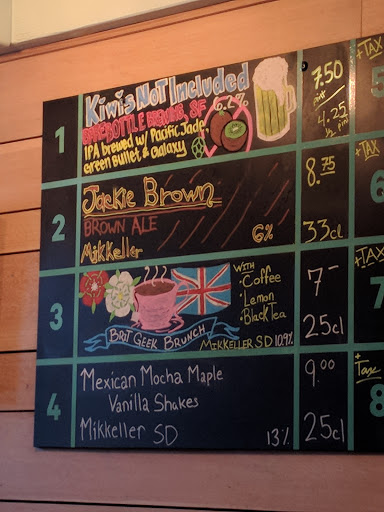 1
Kiwis Not Included
BAREBOTTLE BREWING, SF 6.2%
IPA brewed w/ Pacific Jade,
Green Bullet & Galaxy
7.50
pint
4.25
½ pint
+TAX
5
2
Jackie Brown
BROWN ALE
Mikkeller
6%
8.75
33cl
+TAX
6
3
WITH
• Coffee
• Lemon
• Black Tea
BRIT GEEK BRUNCH
MIKKELLER SD 10.9%
7-
25cl
+TAX
7
4
Mexican Mocha Maple
Vanilla Shakes
Mikkeller SD
13%
9.00
25cl
+Tax
8